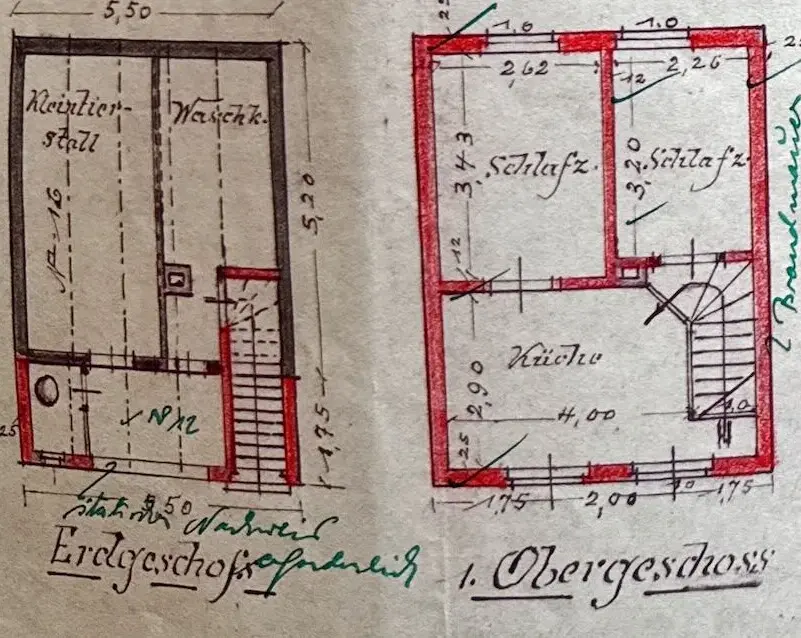 5,50
Kleintier-
stall
Waschk.
5,20
1,75
25
№ 12
5,50
statischer Nachweis
erforderlich
Erdgeschoß
25
1.0
1.0
2,62
12
2,26
25
3,43
Schlafz.
3,20
Schlafz.
12
Brandmauer
Küche
2,90
4,00
25
1,75
2,00
1,75
1. Obergeschoss